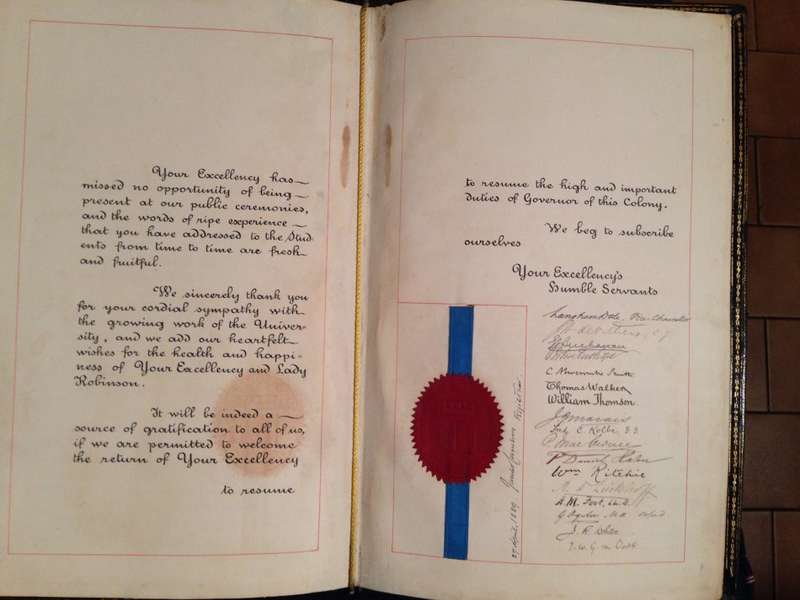 Your Excellency has
missed no opportunity of being
present at our public ceremonies,
and the words of ripe experience
that you have addressed to the Stud-
ents from time to time are fresh
and fruitful.
We sincerely thank you
for your cordial sympathy with
the growing work of the Univer-
sity, and we add our heartfelt
wishes for the health and happi-
ness of Your Excellency and Lady
Robinson.
It will be indeed a
source of gratification to all of us,
if we are permitted to welcome
the return of Your Excellency
to resume
to resume the high and important
duties of Governor of this Colony.
We beg to subscribe
ourselves
Your Excellency's
Humble Servants
Langham Dale, Vice-Chancellor
C.
Thomas Walker
William Thomson
J.
F. C. Kolbe, D.D.
P.
Wm Ritchie
A.M.
27 April, 1889 Registrar